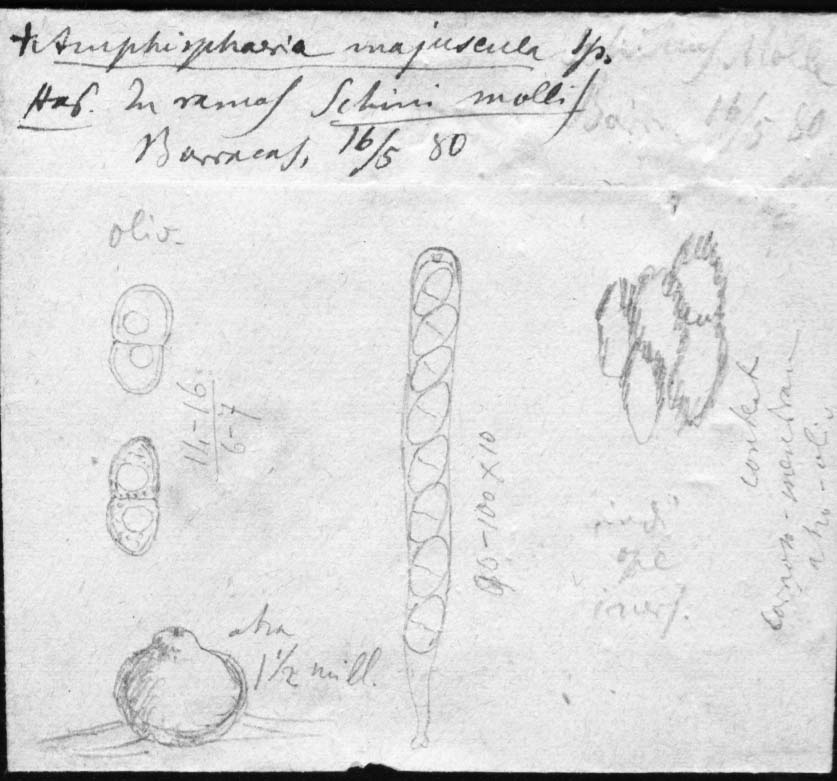 + Amphisphaeria majuscula Sp.
Hab. In ramos Schini mollis
Barracas, 16/5 80
Molle
16/5 80
oliv.
14-16
6-7
90-100 x 10
atra
1 1/2 mill.
context
membran
atro-oliv